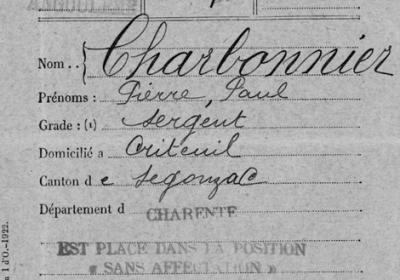 Nom .. Charbonnier
Prénoms : Pierre, Paul
Grade : (1) Sergent
Domicilié a Criteuil
Canton d e Segonzac
Département d CHARENTE
EST PLACE DANS LA POSITION
« SANS AFFECTATION »
1 d'O.-1922.